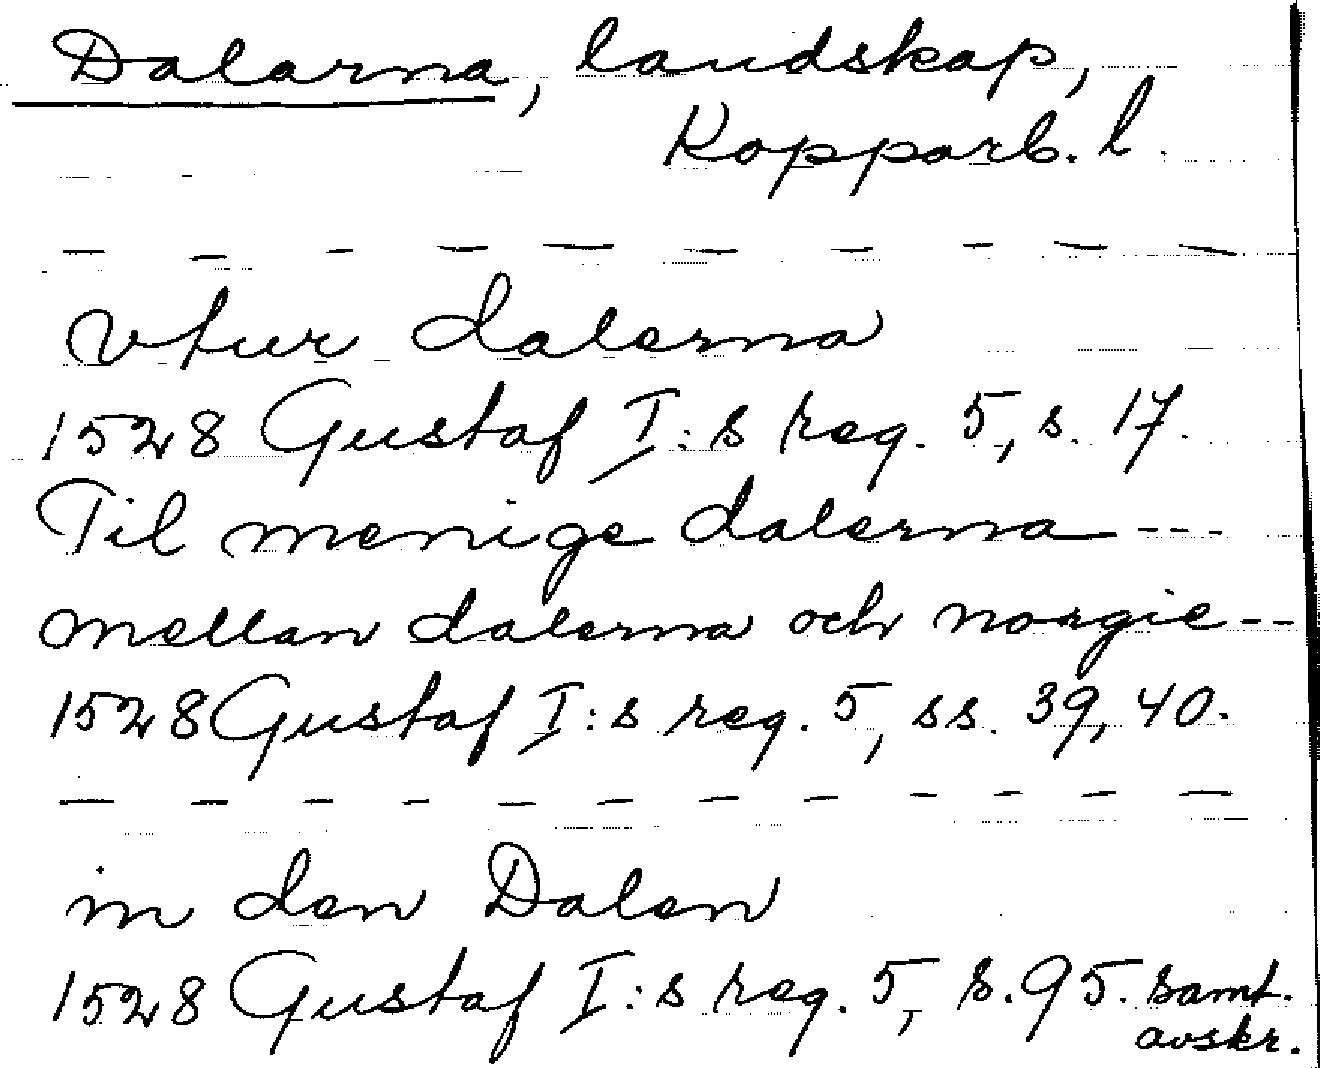 Dalarna, landskap,
Kopparb. l.
— — — — — — — — — —
vtur dalerna
1528 Gustaf I:s reg. 5, s. 17.
Til menige dalerna ---
mellan dalerna och norgie --
1528 Gustaf I:s reg. 5, ss. 39, 40.
— — — — — — — — — — — —
in den Dalen
1528 Gustaf I:s reg. 5, s. 95. samt.
avskr.